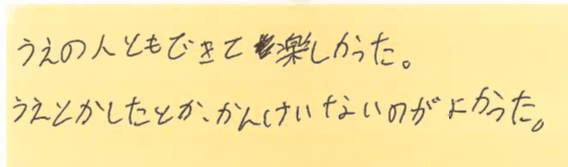 うえの人ともできて楽しかった。
うえとかしたとか、かんけいないのがよかった。